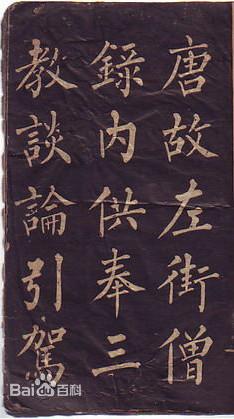 唐故左街僧
錄內供奉三
教談論引駕
Bai百科